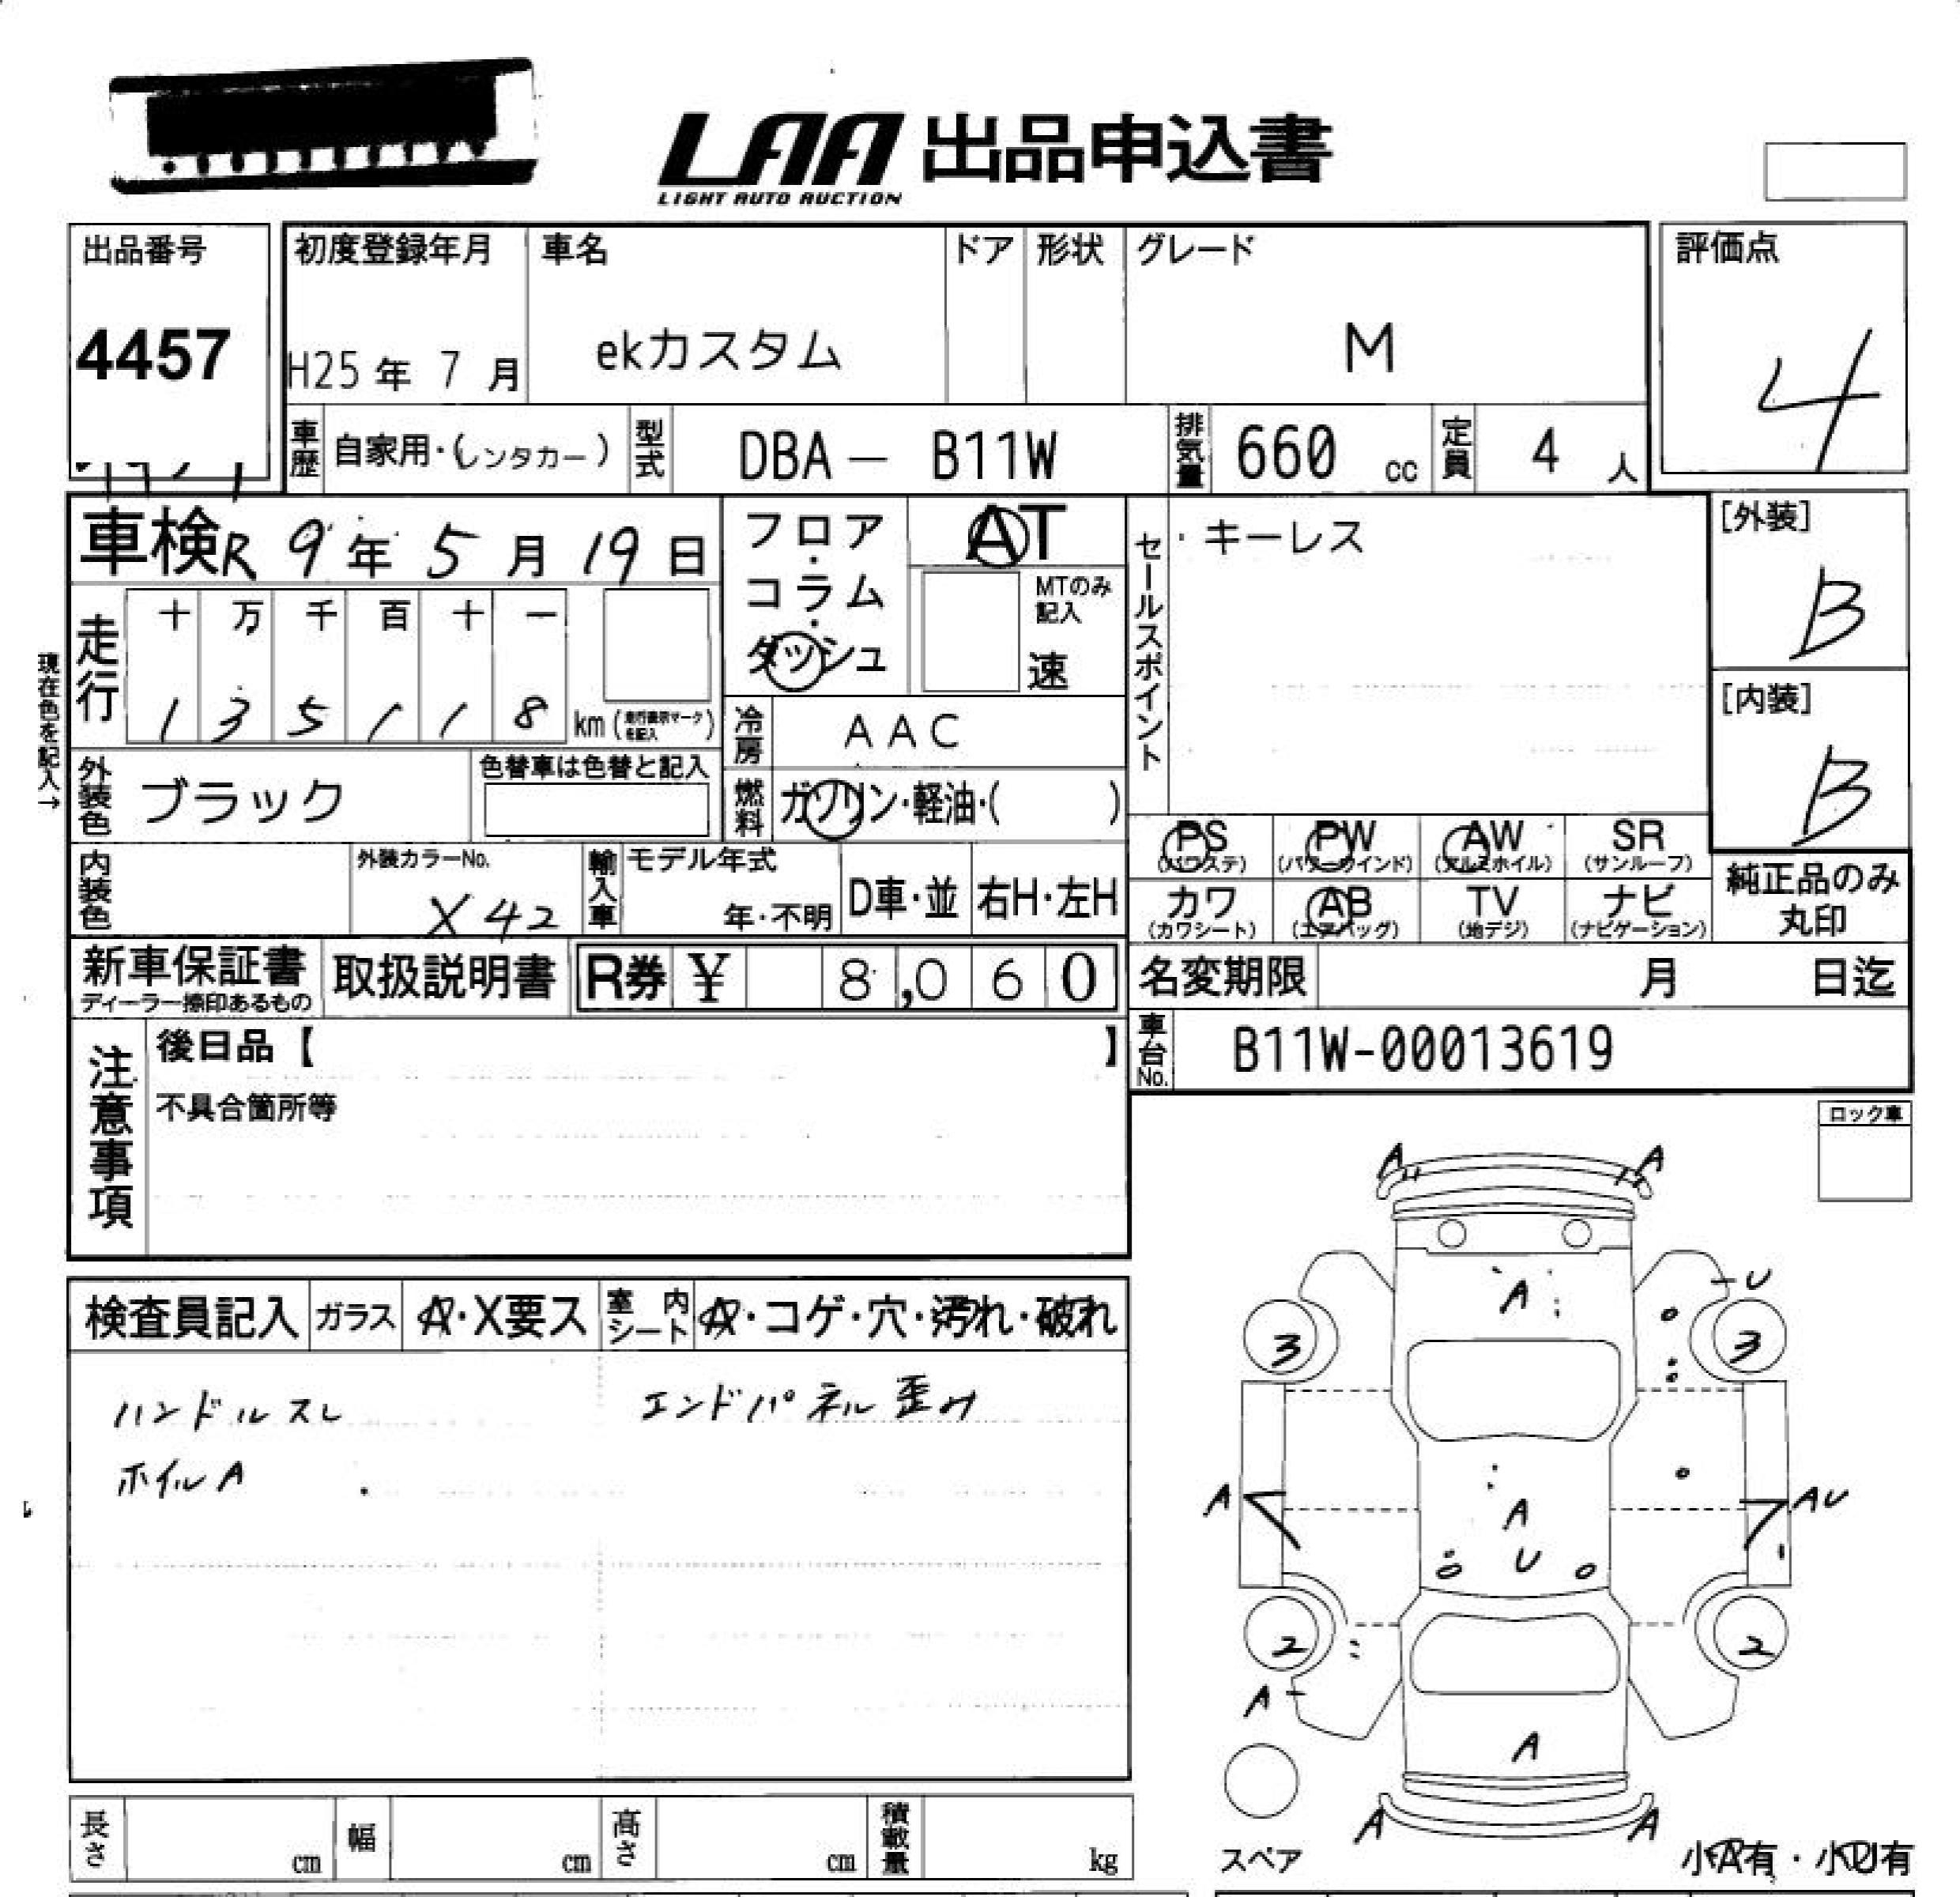 LAA 出品申込書
LIGHT AUTO AUCTION
出品番号
4457
初度登録年月
H25年 7月
車名
ekカスタム
ドア
形状
グレード
M
評価点
4
車歴
自家用・(レンタカー)
型式
DBA － B11W
排気量
660 cc
定員
4 人
車検 R 9年 5月 19日
フロア・コラム・ダッシュ
AT
MTのみ記入
速
セールスポイント
・キーレス
[外装]
B
[内装]
B
現在色を記入→
走行
十 万 千 百 十 一
1 3 5 1 1 8 km
冷房
AAC
外装色
ブラック
色替車は色替と記入
燃料
ガソリン・軽油・( )
PS (パワステ)
PW (パワーウインド)
AW (アルミホイル)
SR (サンルーフ)
カワ (カワシート)
AB (エアバッグ)
TV (地デジ)
ナビ (ナビゲーション)
純正品のみ丸印
内装色
外装カラーNo.
X42
輸入車
モデル年式
年・不明
D車・並
右H・左H
新車保証書
ディーラー捺印あるもの
取扱説明書
R券 ¥ 8,060
名変期限 月 日迄
車台No.
B11W-00013619
注意事項
後日品【 】
不具合箇所等
ロック車
検査員記入
ガラス
A・X要ス
室内シート
A・コゲ・穴・汚れ・破れ
ハンドルスレ
エンドパネル歪み
ホイルA
A A
A
U
3 3
A
A
AU
U
2 2
A
A
A A
スペア
小A有・小U有
長さ cm
幅 cm
高さ cm
積載量 kg